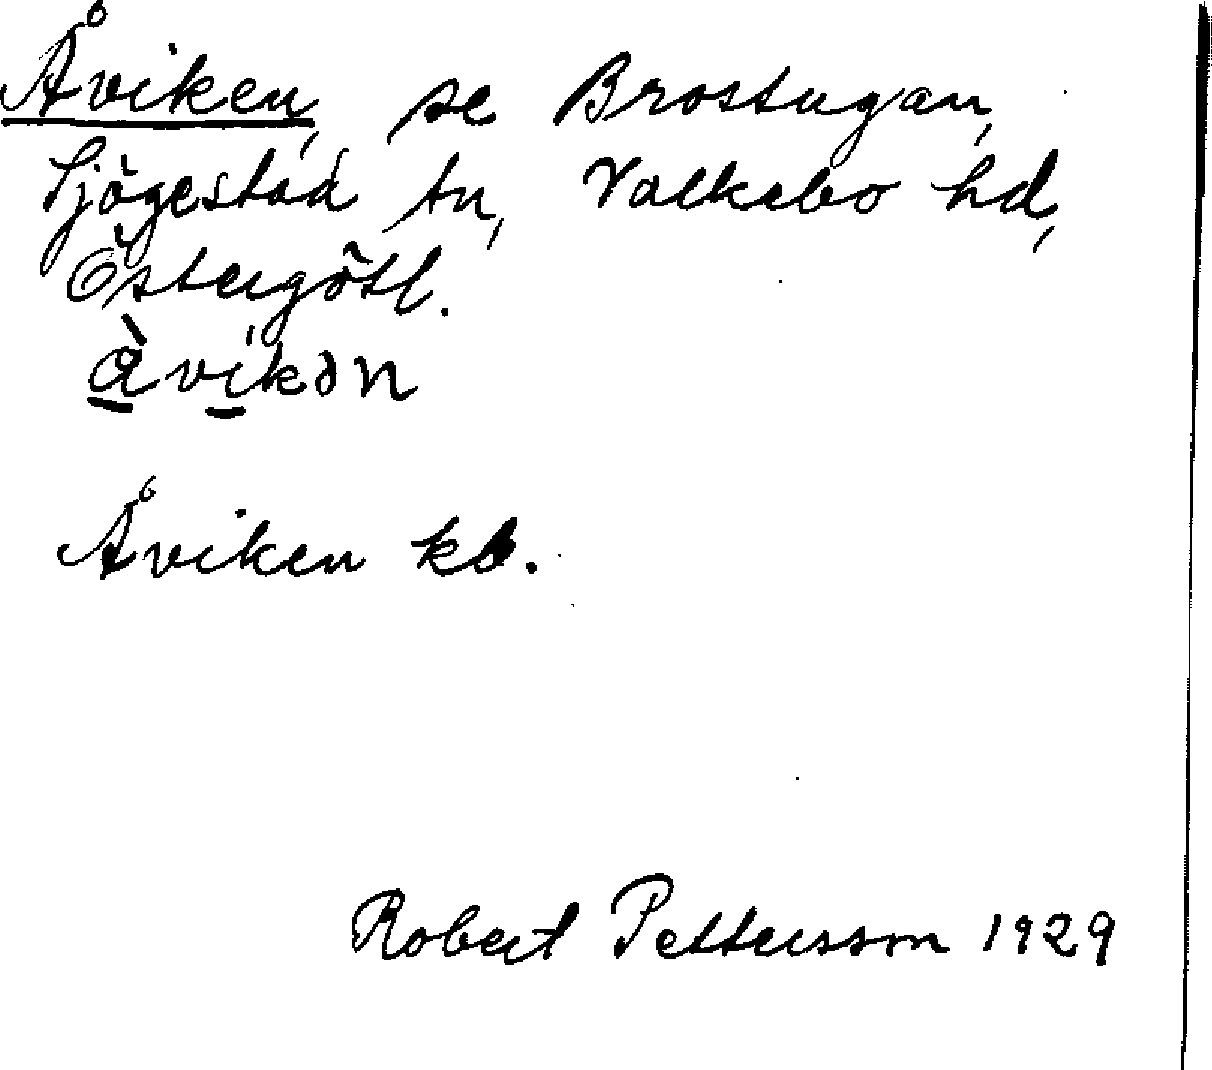 Åviken, se Brostugan,
Sjögestad sn, Valkebo hd,
Östergötl.
å̀víkən
Åviken kb.
Robert Pettersson 1929